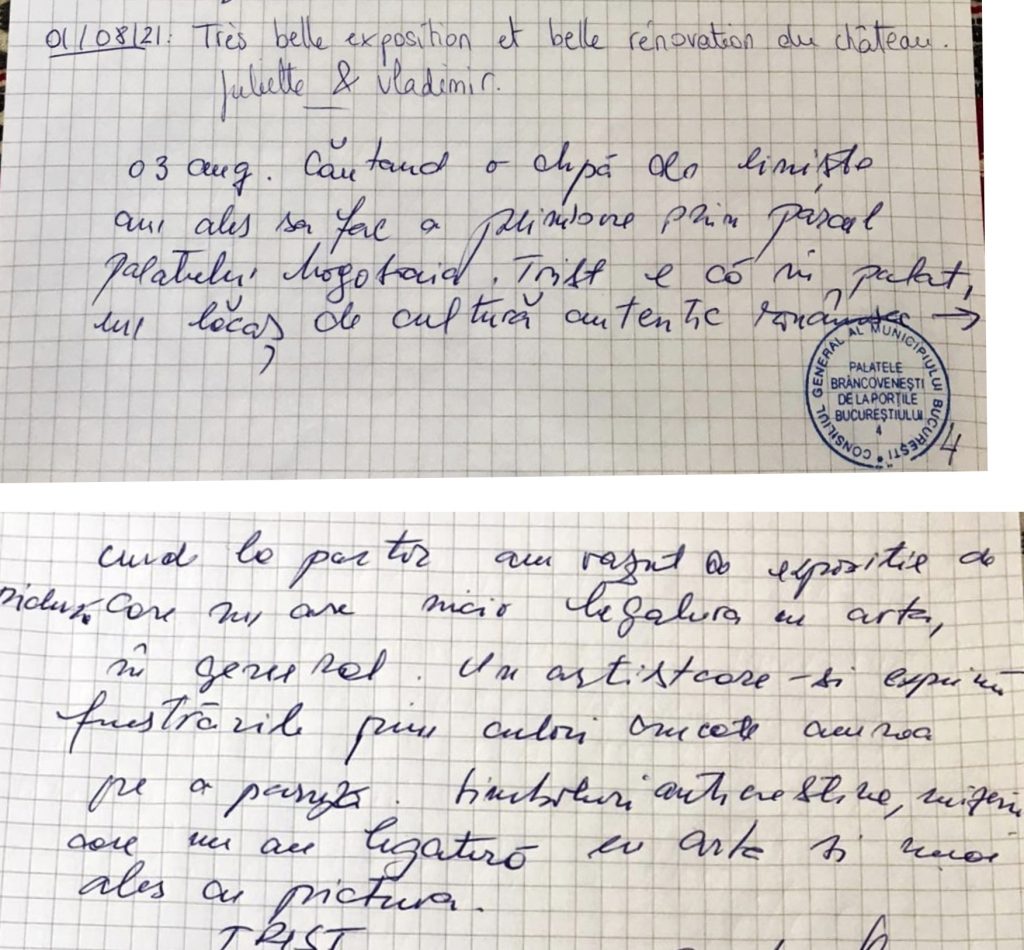 01/08/21: Très belle exposition et belle rénovation du château.
Juliette & Vladimir.
03 aug. Căutand o clipă de liniște
am ales sa fac o plimbare prin parcul
palatului Mogosoaia. Trist e că în palat,
un lăcaș de cultură autentic românesc →
CONSILIUL GENERAL AL MUNICIPIULUI BUCUREȘTI
PALATELE
BRÂNCOVENEȘTI
DE LA PORȚILE
BUCUREȘTIULUI
4
4
la parter am vazut o expozitie de
care nu are nicio legatura cu arta,
în general. Un artist care-si exprimă
frustrările prin culori aruncate
pe o panza. Simboluri anticrestine,
care nu au legatură cu arta si mai
ales cu pictura.
TRIST